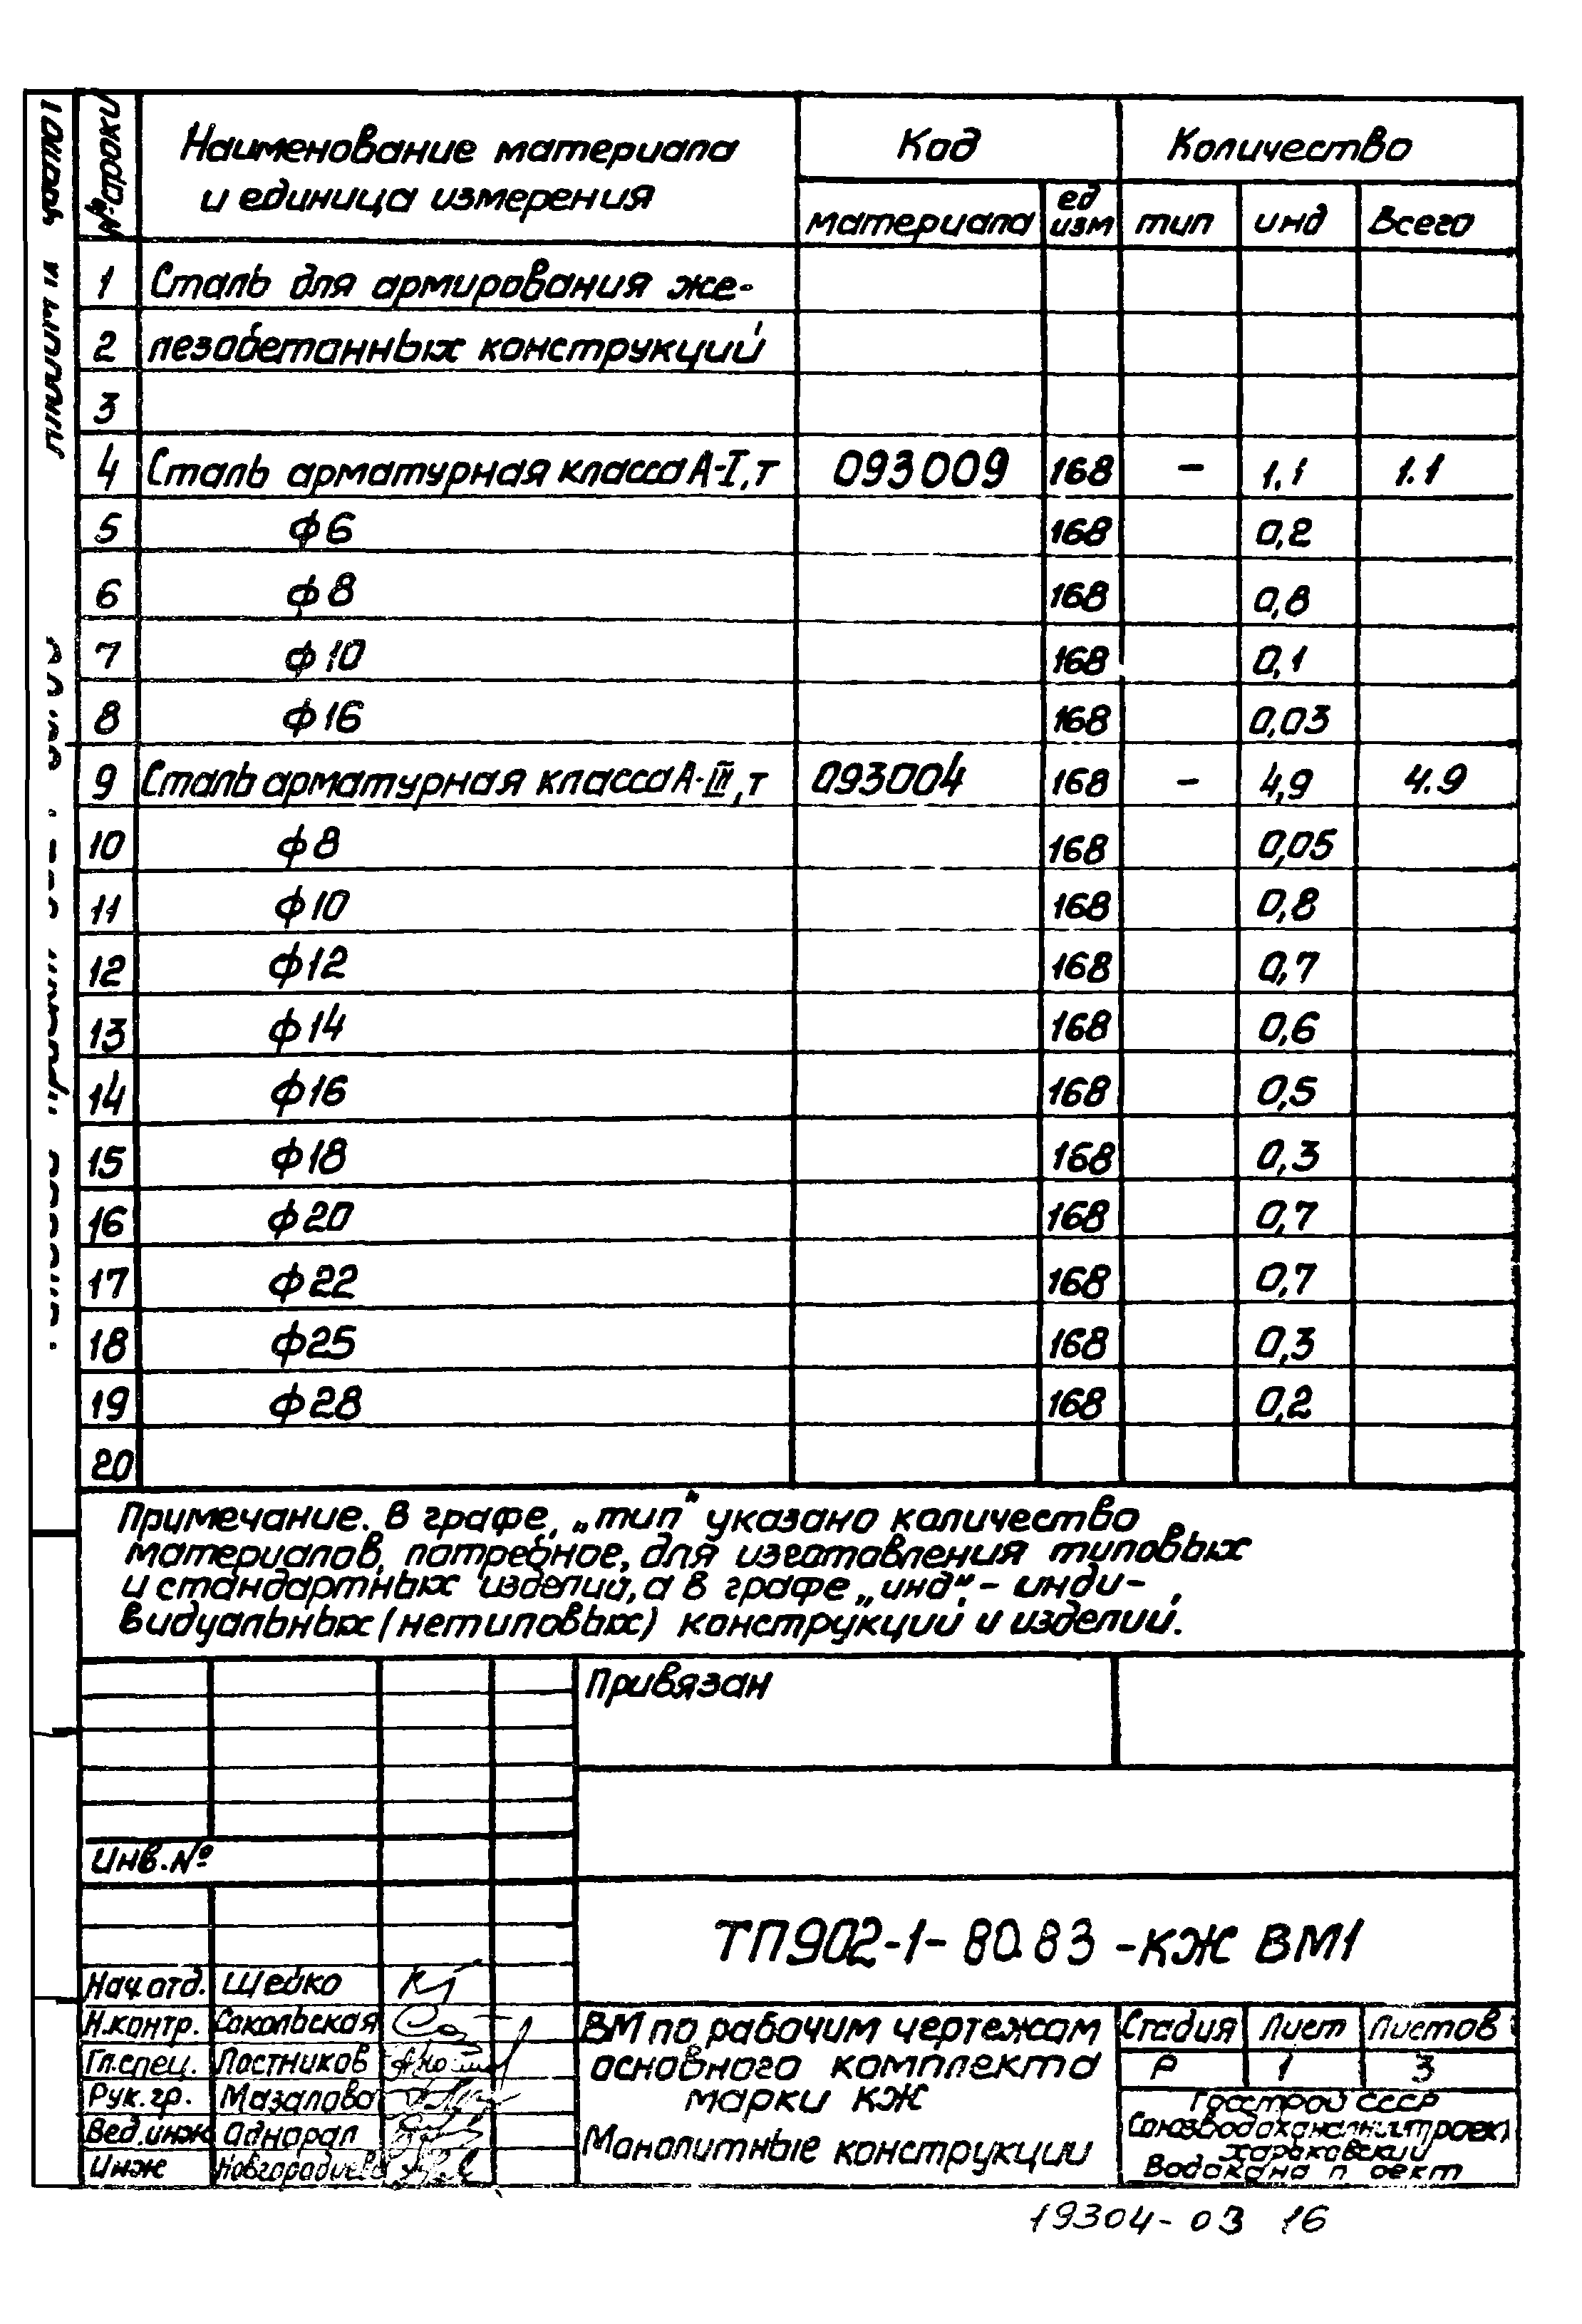 № строки
Наименование материала
и единица измерения
Код
Количество
материала
ед
изм
тип
инд
Всего
1 Сталь для армирования же-
2 лезобетонных конструкций
3
4 Сталь арматурная класса А-I, т 093009 168 - 1,1 1.1
5 ф6 168 0,2
6 ф8 168 0,8
7 ф10 168 0,1
8 ф16 168 0,03
9 Сталь арматурная класса А-III, т 093004 168 - 4,9 4.9
10 ф8 168 0,05
11 ф10 168 0,8
12 ф12 168 0,7
13 ф14 168 0,6
14 ф16 168 0,5
15 ф18 168 0,3
16 ф20 168 0,7
17 ф22 168 0,7
18 ф25 168 0,3
19 ф28 168 0,2
20
Примечание. В графе, „тип" указано количество
материалов, потребное, для изготовления типовых
и стандартных изделий, а в графе „инд." - инди-
видуальных (нетиповых) конструкций и изделий.
Привязан
Инв.№
ТП902-1-80.83 -КЖ ВМ1
Нач.отд. Шейко
Н.контр. Сокольская
Гл.спец. Постников
Рук.гр. Мазалова
Вед.инж Аднорал
Инж
ВМ по рабочим чертежам
основного комплекта
марки КЖ
Монолитные конструкции
Стадия Лист Листов
Р 1 3
Госстрой СССР
Харьковский
19304-03 16